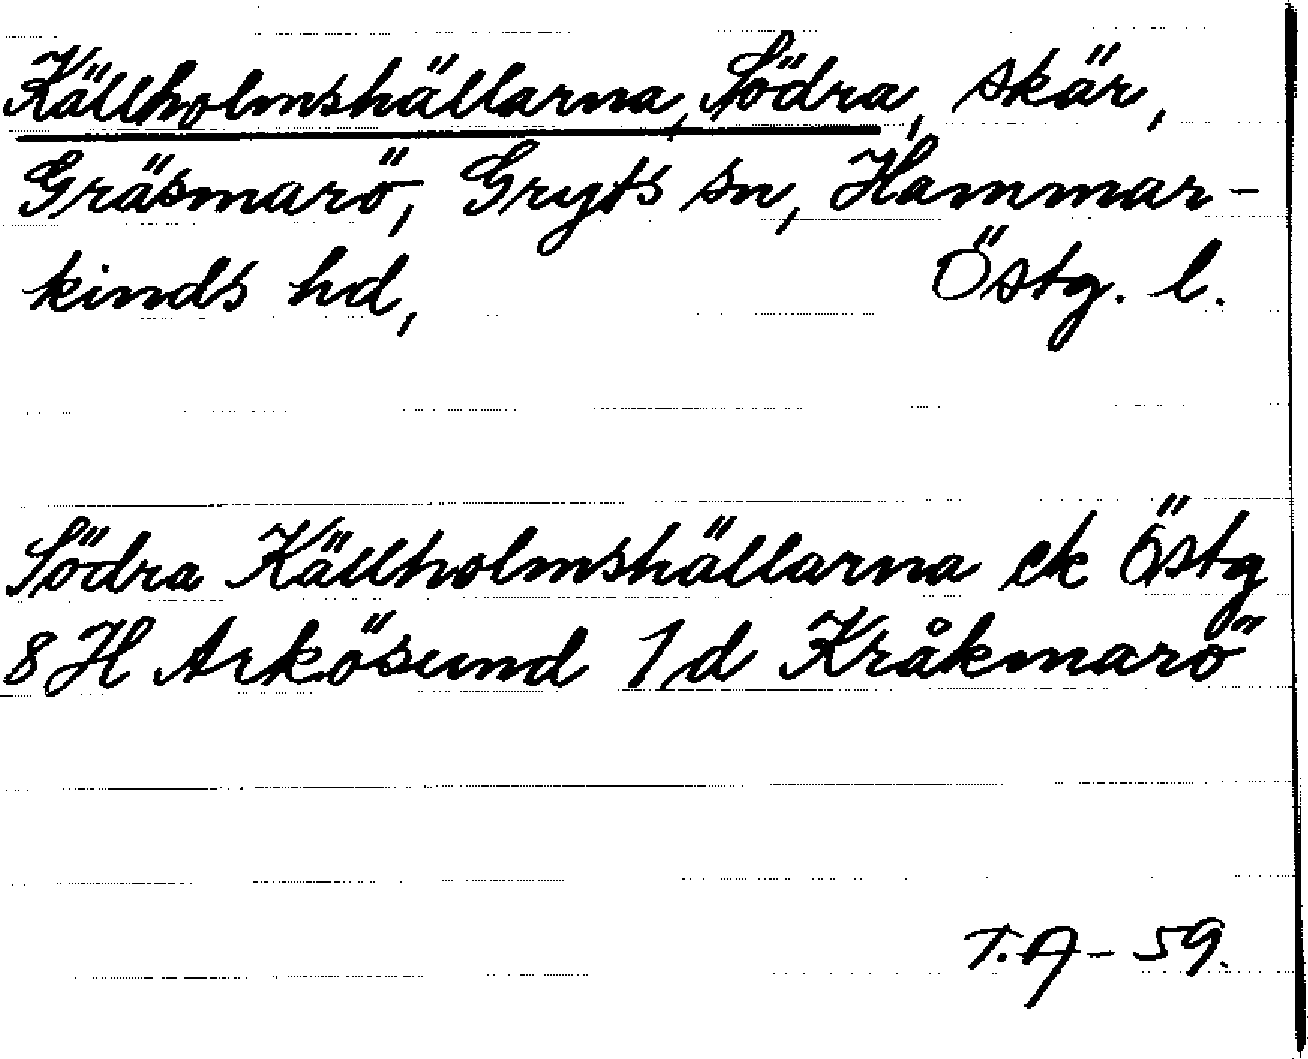 Källholmshällarna, Södra, skär,
Gräsmarö, Gryts sn, Hammar-
kinds hd, Östg. l.
Södra Källholmshällarna ek Östg
8H Arkösund 1d Kråkmarö
T.A-59.